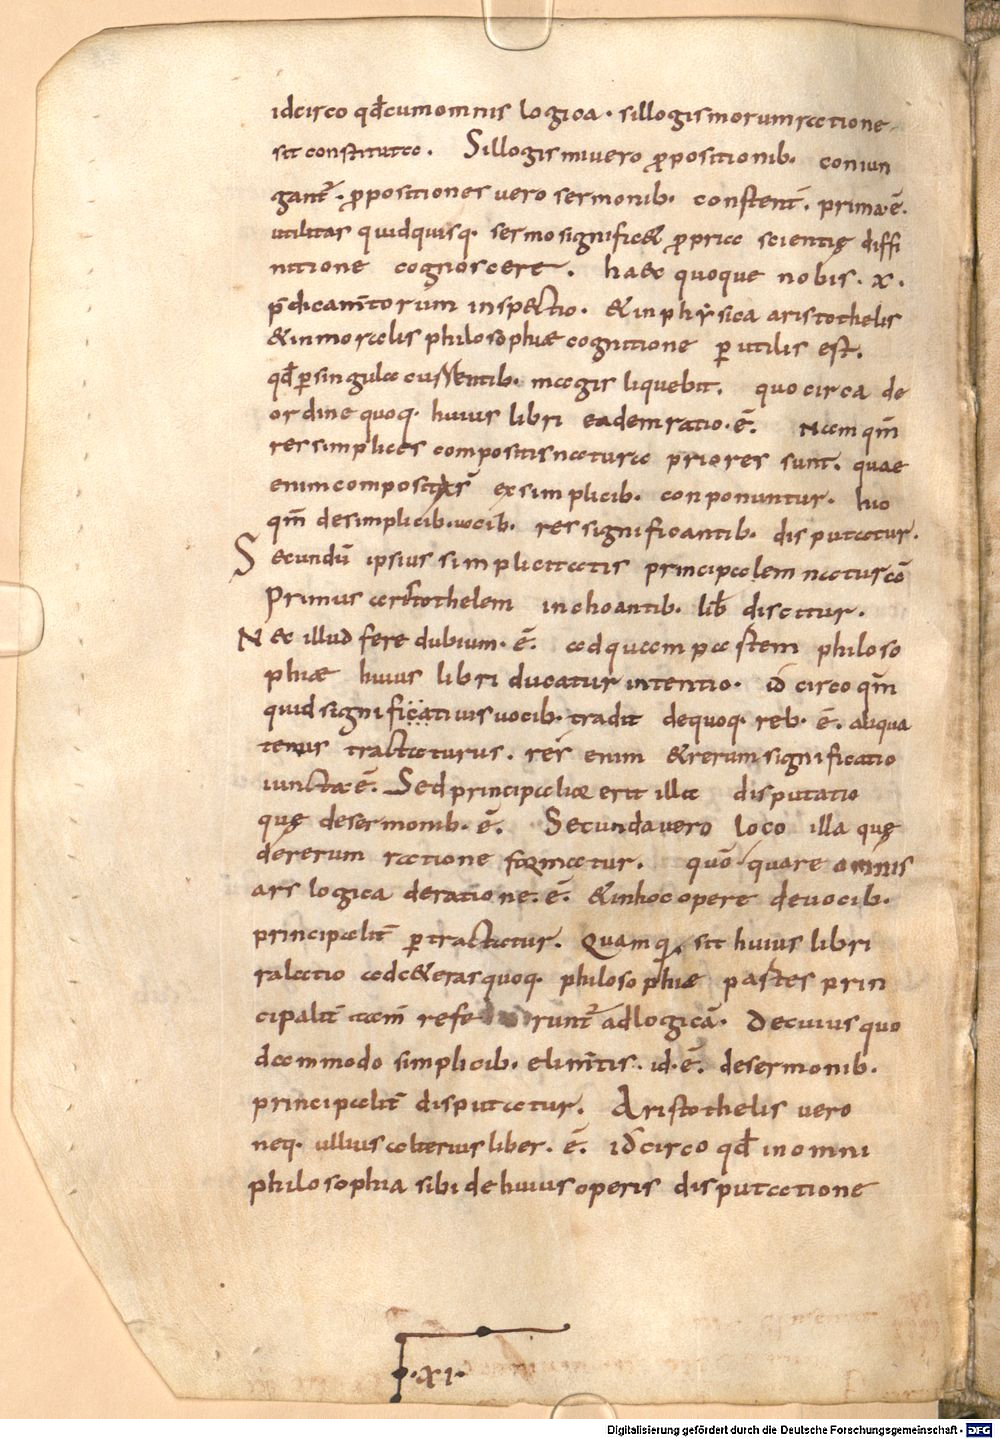 idcirco qđ cum omnis logica · sillogismorum ratione
sit constituta . Sillogismi vero ꝓpositionib· coniun
gant̄ . ꝓpositiones vero sermonib· constent̄ . prima · ē .
utilitas quid quisq· sermo significet ꝓpriae scientię diffi
nitione cognoscere . haec quoque nobis . x .
p̄dicam̄torum inspectio . & in physica aristothelis
& in moralis philosophiae cognitione ꝑutilis est .
qđ ꝑ singula currentib· magis liquebit . quo circa de
ordine quoq· huius libri eadem ratio · ē . Nam qm̄
res simplices compositis natura priores sunt . quae
enim composita s̄ ex simplicib· conponuntur . huo
qm̄ de simplicib· uocib· res significantib· disputatur .
Secundū ipsius simplicitatis principalem naturā
Primus aristothelem inchoantib· lib̄ discitur .
Nec illud fere dubium · ē . ad quam partem philoso
phiae huius libri ducatur intentio · idcirco qm̄
quid significatiuis uocib· tradit de quoq· reb· ē . aliqua
tenus tractaturus . res enim & rerum significatio
iuncta · ē . Sed principalior erit illa disputatio
quę de sermonib· ē . Secunda vero loco illa quę
de rerum ratione formatur . quō quare omnis
ars logica de ratione · ē . & in hoc opere de uocib·
principalit̄ ꝑtractatur . Quamq̄ sit huius libri
ralatio ad ceteras quoq· philosophiae partes prin
cipalit̄ tam̄ referunt̄ ad logicā . De cuius quo
dammodo simplicib· elim̄tis . id · ē . de sermonib·
principalit̄ disputatur . Aristothelis vero
neq· ullius alterius liber · ē . idcirco qđ in omni
philosophia sibi de huius operis disputatione
· XI ·
Digitalisierung gefördert durch die Deutsche Forschungsgemeinschaft - DFG